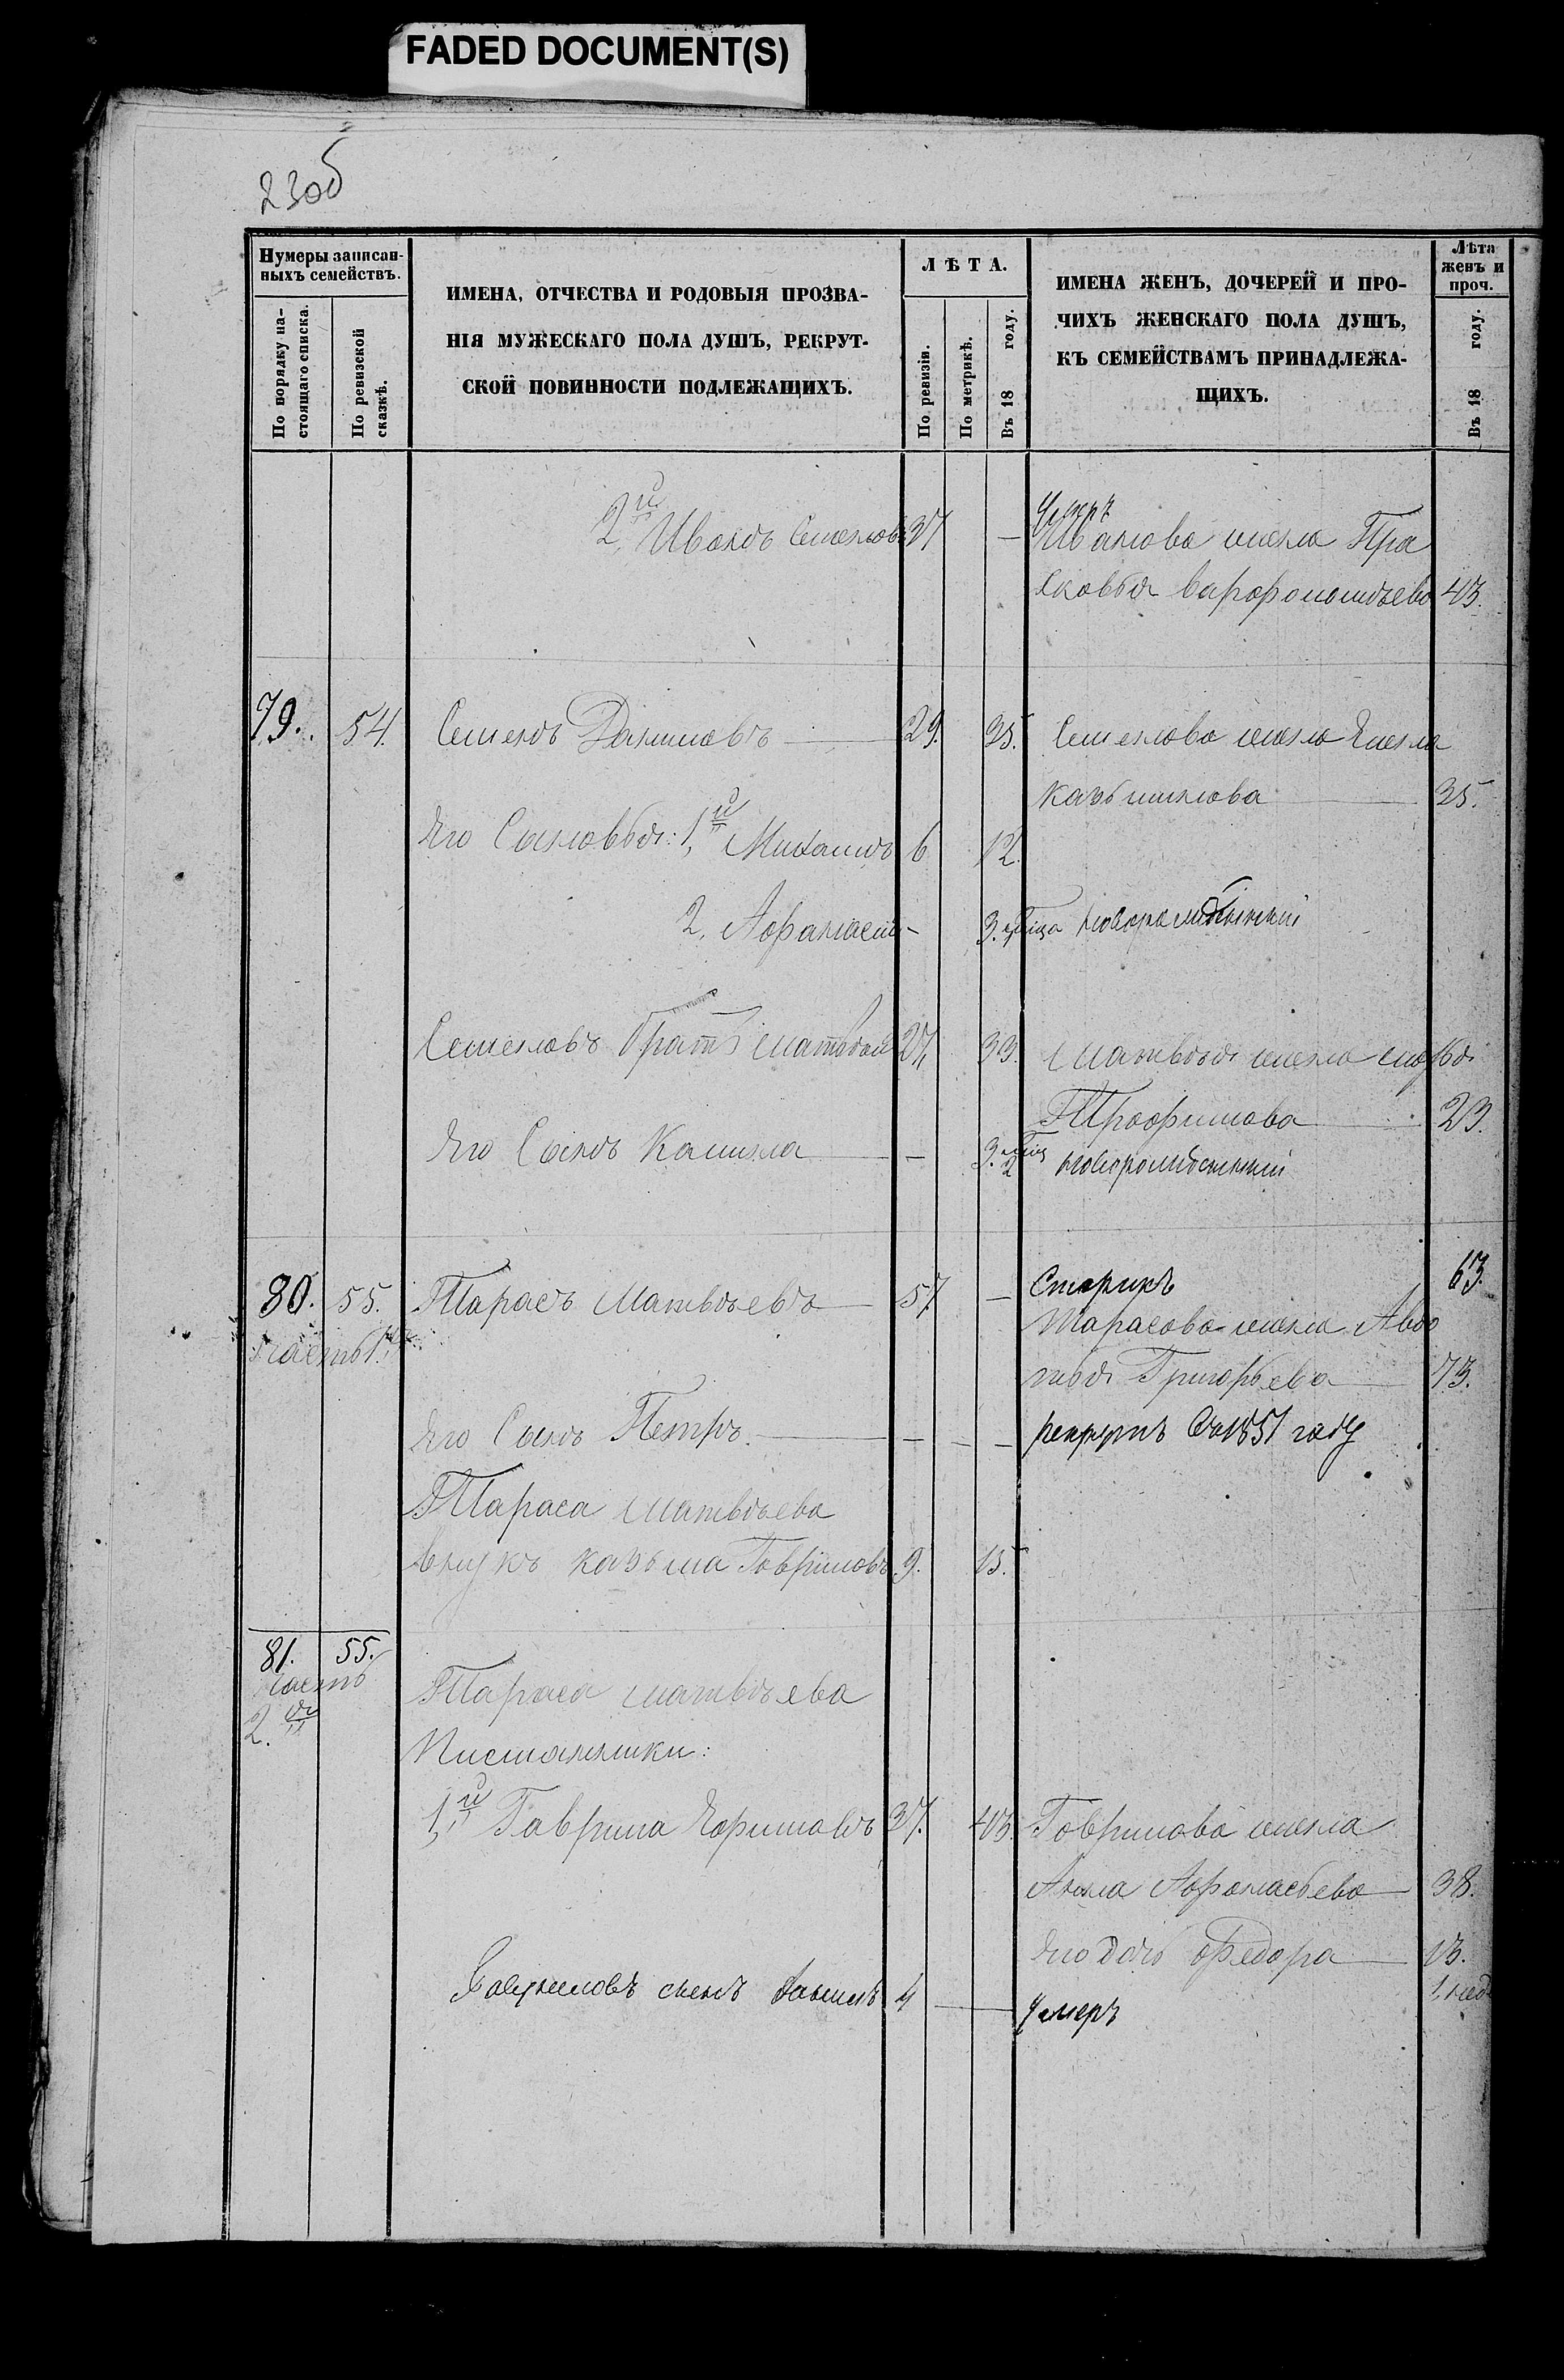 FADED DOCUMENT(S)
230б
Нумеры записан-
ныхъ семействъ.
По порядку на-
стоящаго списка.
По ревизской
сказкѣ.
ИМЕНА, ОТЧЕСТВА И РОДОВЫЯ ПРОЗВА-
НІЯ МУЖЕСКАГО ПОЛА ДУШЪ, РЕКРУТ-
СКОЙ ПОВИННОСТИ ПОДЛЕЖАЩИХЪ.
ЛѢТА.
По ревизіи.
По метрикѣ.
Въ 18 году.
ИМЕНА ЖЕНЪ, ДОЧЕРЕЙ И ПРО-
ЧИХЪ ЖЕНСКАГО ПОЛА ДУШЪ,
КЪ СЕМЕЙСТВАМЪ ПРИНАДЛЕЖА-
ЩИХЪ.
Лѣта
женъ и
проч.
Въ 18 году.
умеръ
2й Иванъ Семеновъ 37 — Иванова жена Пра
сковья Варфоломѣева 43.
79. 54. Семенъ Даниловъ — 29. 35. Семенова жена
35.
Его Сыновья: 1,й Михаилъ 6 12.
2, Афанасій - 3. новорожденный
Семеновъ братъ Матвѣй 27, 33. Матвѣя жена
Трофимова 23.
Его Сынъ — 3. новорожденный
80. 55. Тарасъ Матвѣевъ — 57. — Старикъ 63.
часть 1.я Тарасова жена Авдо
тья Григорьева 73.
Его Сынъ Петръ. — — — рекрутъ съ 1851 году
Тараса Матвѣева
внукъ Казьма Гавриловъ 9. 15.
81. 55.
часть
2.я
Тараса Матвѣева
племянники:
1,й Гаврила Ефимовъ 37. 43. Гаврилова жена
Анна Афанасьева — 38.
Его дочь Федора — 13.
Гавриловъ сынъ Данилъ 4 — умеръ